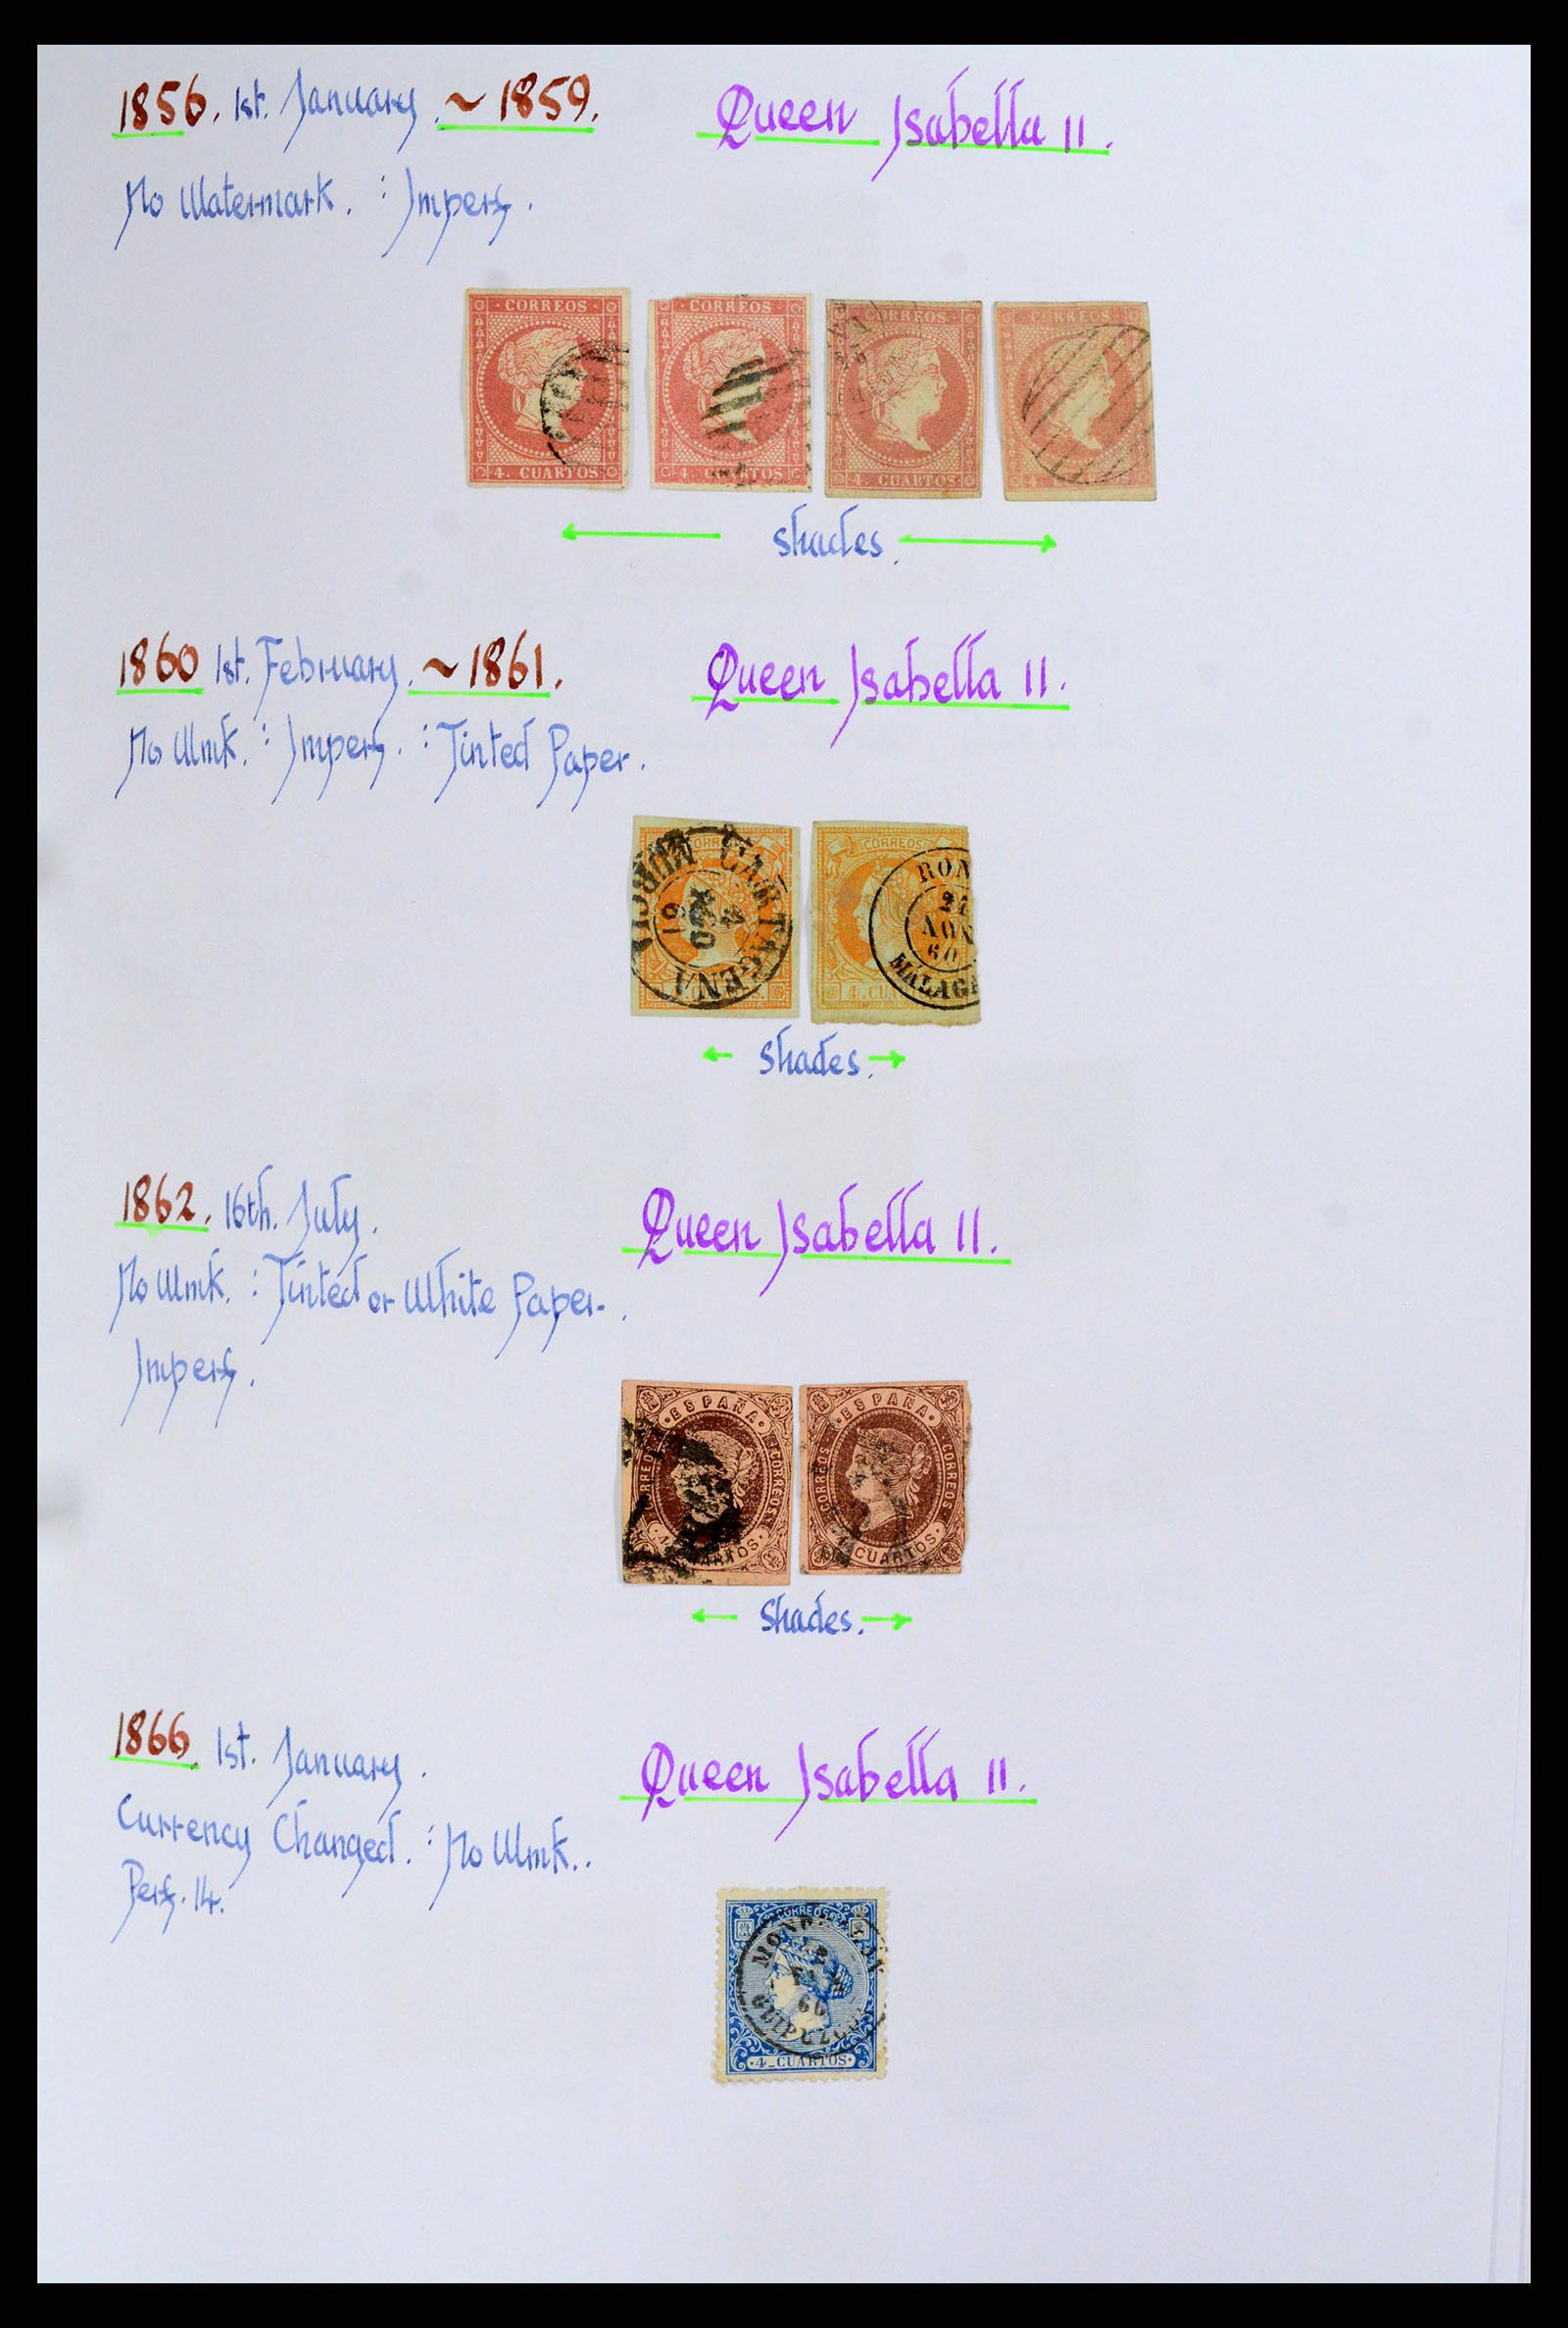 1856. 1st. January. ~ 1859. Queen Isabella II.
No Watermark. : Imperf.
CORREOS CORREOS CORREOS CORREOS
4. CUARTOS 4. CUARTOS
shades.
1860 1st. February. ~ 1861. Queen Isabella II.
No Wmk. : Imperf. : Tinted Paper.
CORREOS
CARTAGENA MURCIA
61
RON
60
MALAGA
4. CU
Shades.
1862. 16th. July. Queen Isabella II.
No Wmk. : Tinted or White Paper.
Imperf.
ESPAÑA ESPAÑA
CORREOS CORREOS CORREOS CORREOS
4 CUARTOS
Shades.
1866. 1st. January. Queen Isabella II.
Currency Changed. : No Wmk..
Perf. 14.
CORREOS
66
4_CUARTOS